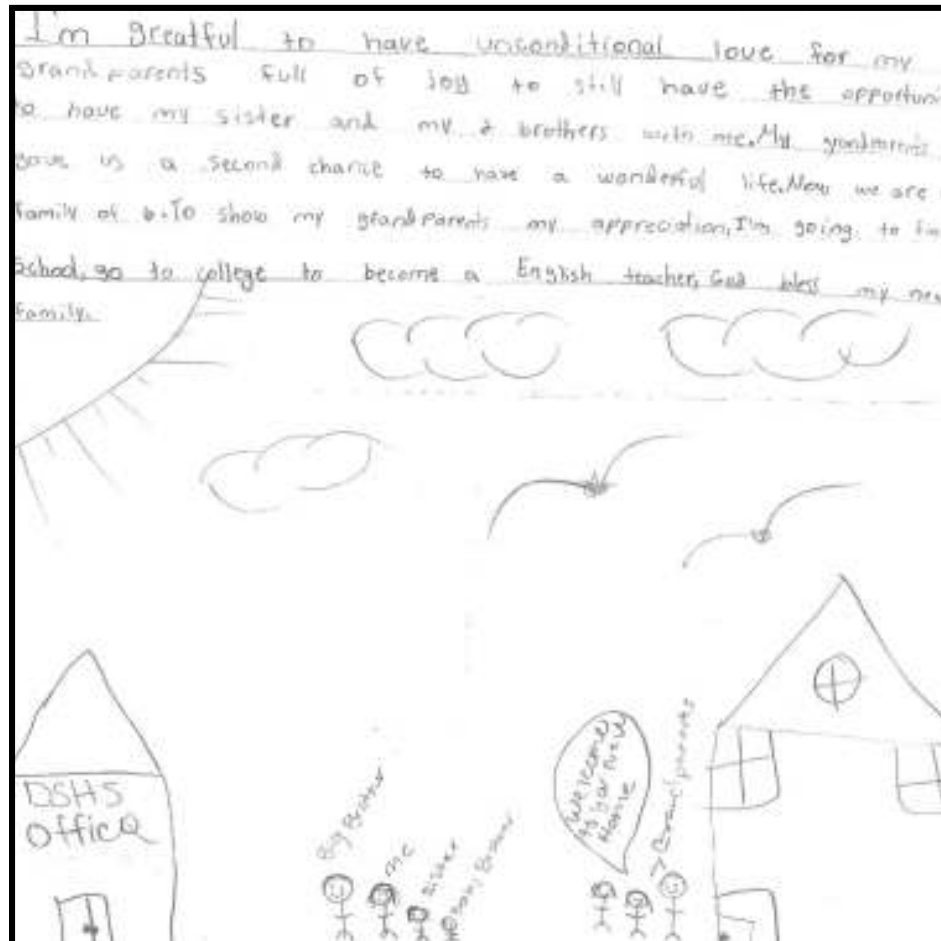 I'm greatful to have unconditional love for my
grandparents full of Joy to still have the opportuni
to have my sister and my 2 brothers with me. My grandparents
gave us a second chance to have a wonderful life. Now we are
family of 6. To show my grandparents my appreciation, I'm going to fin
School, go to college to become a English teacher, God bless my new
family.
DSHS
Office
Big Brother
Me
Sister
Baby Brother
Welcome
to your new
Home
Grandparents